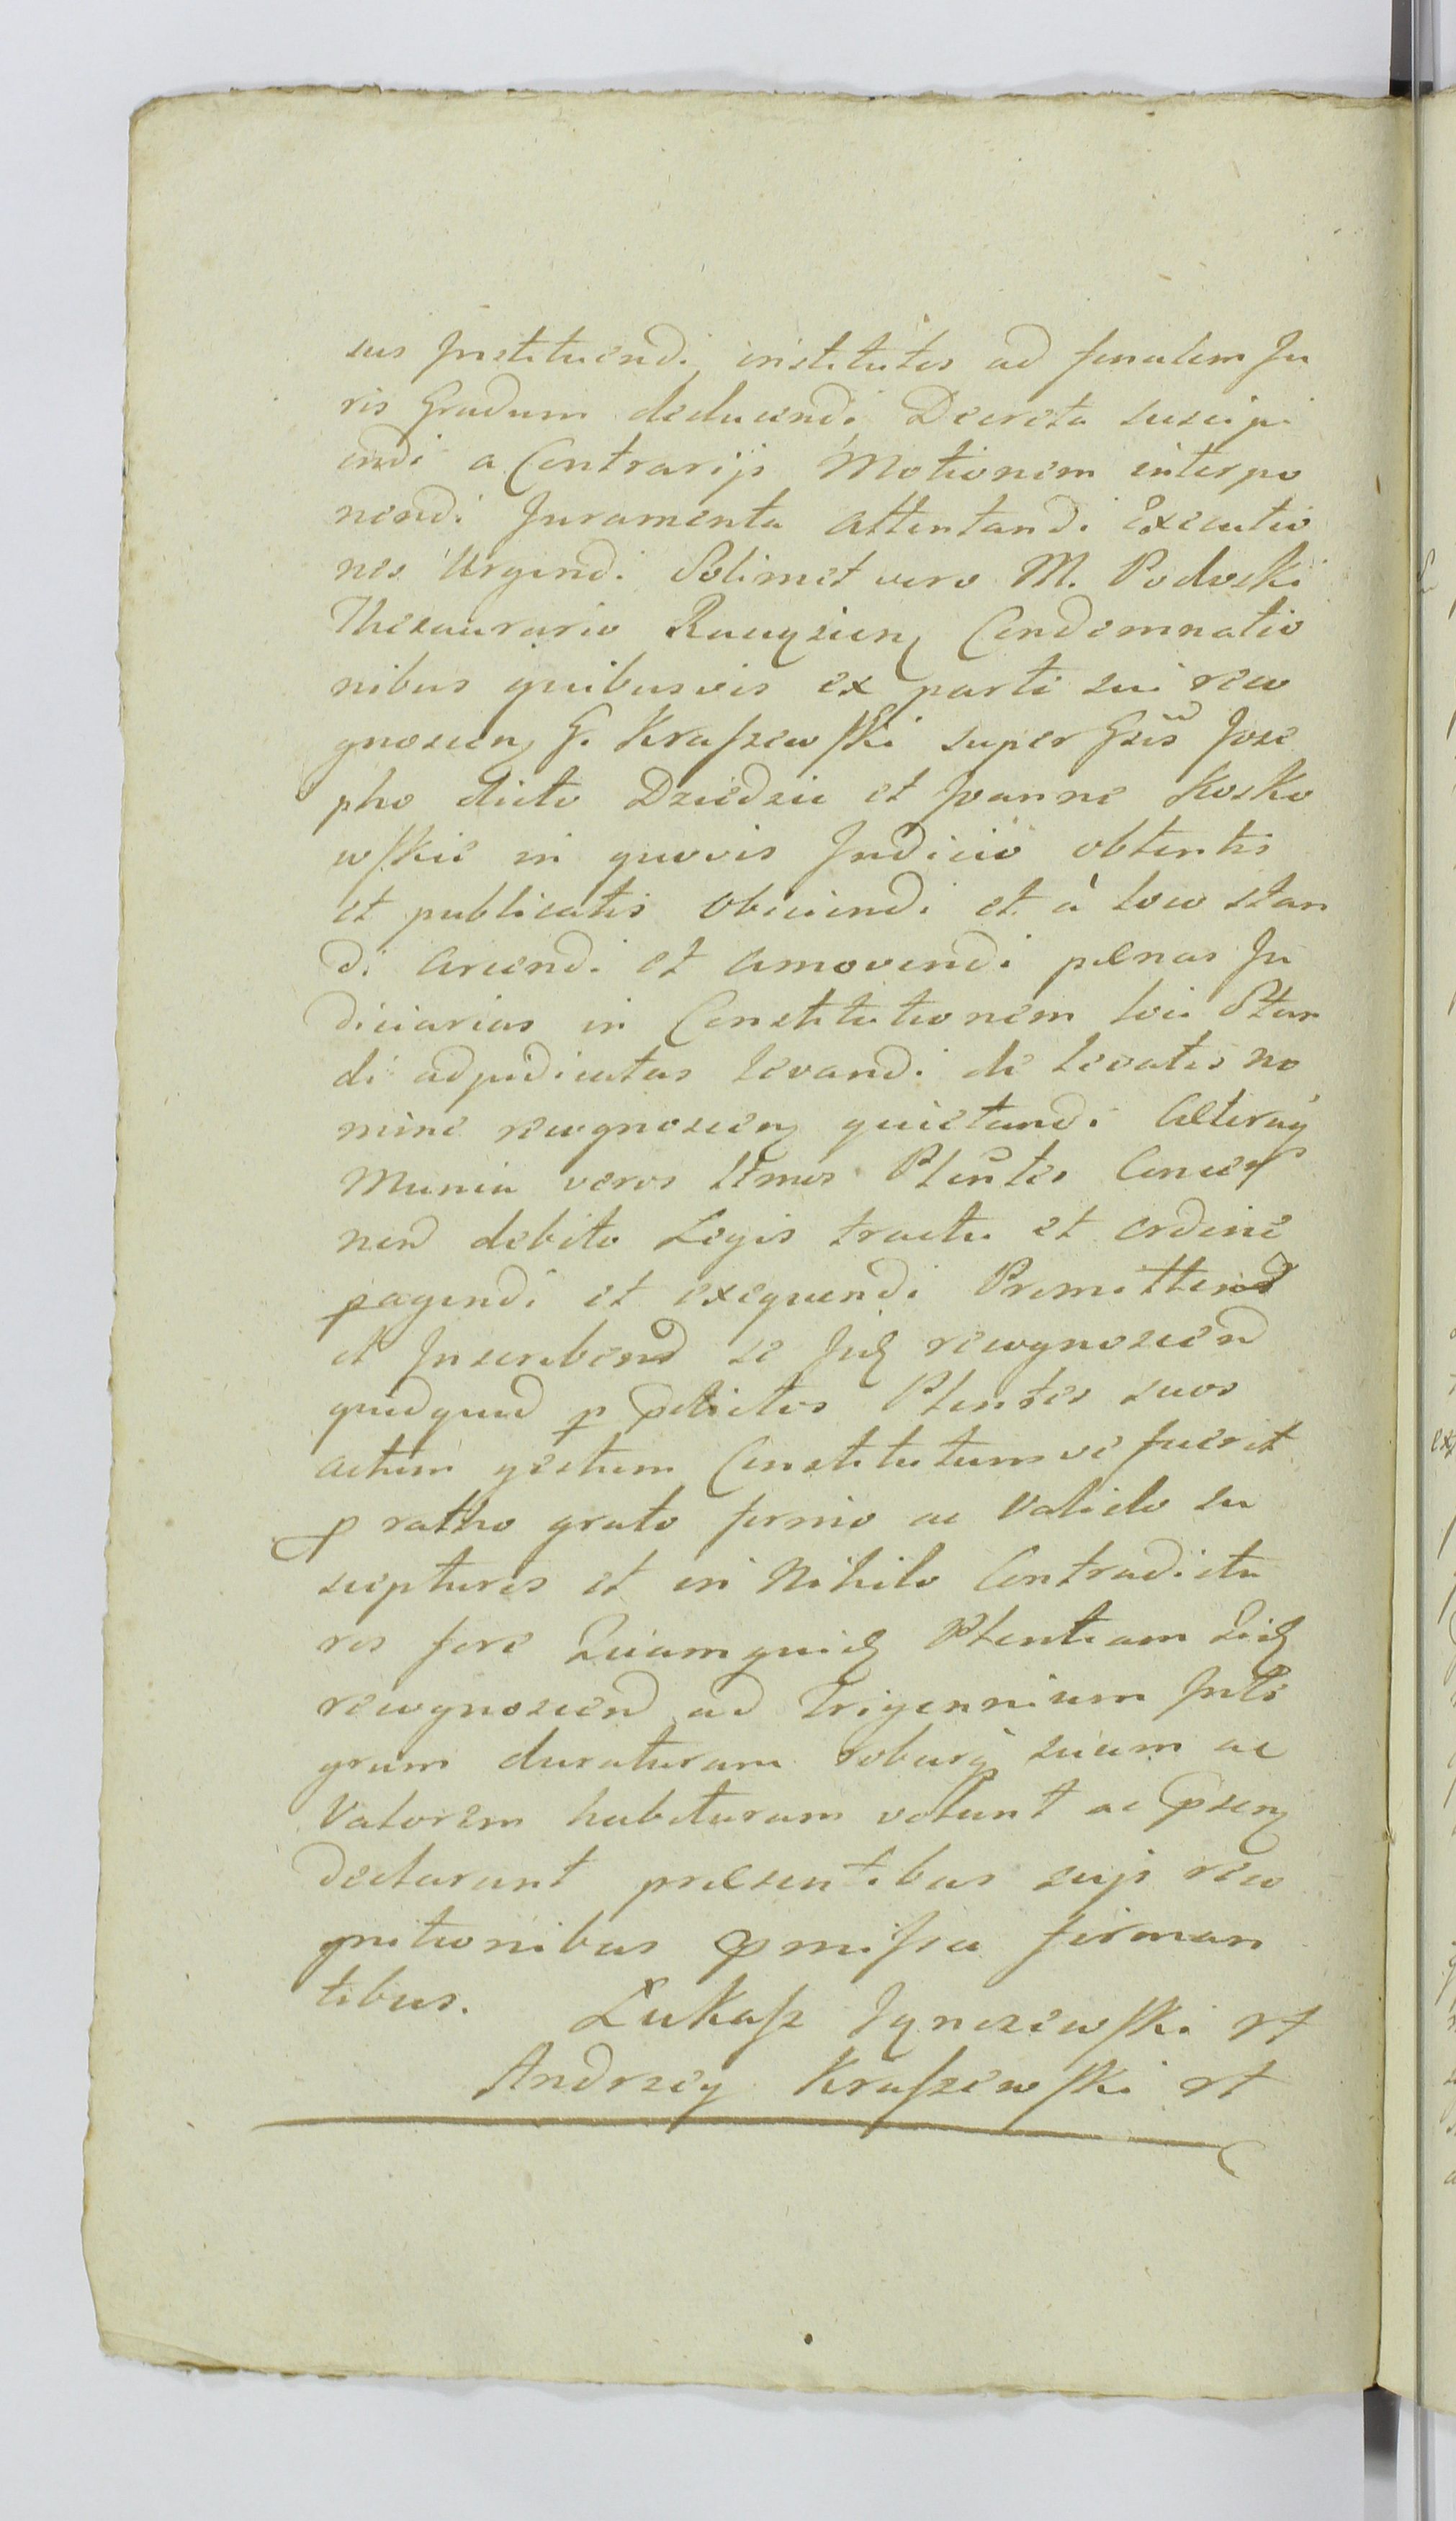 sus Instituendi, institutos ad finalem Ju
ris Gradum deducendi Decreta suscipi
endi a Contrarijs Motionem interpo
nendi Juramenta attentandi Executio
nes Urgendi Solimet vero M. Podoski
Thesaurario Rawzien Condemnatio
nibus quibusvis ex parte sui reco
gnoscen G. Kraszewski super Gsis Jose
pho dicto Dziedzic et Joanne Kosko
wskie in quovis Judicio obtentis
et publicatis obiciendi et à loco stan
di arcendi et amovendi pænas Ju
diciarias in Constitutionem loci Stan
di adjudicatas levandi de levatis no
mine recognoscen quietandi Cæteraq
Munia veros ltmos Plentes Concer
nen debito Legis tractu et ordine
pagendi et exequendi Promitten
et Inscriben se Jidq recognoscen
quidquid p pdictos Plentes suos
actum gestum Constitutumve fuerit
p ratho grato firmo ac Valido su
scepturos et in Nihilo Contradictu
ros fore Quamquidq Plentiam Iidq
recognoscen ad Trigennium Inte
grum duraturam roburq suum ac
Valorem habituram volunt ac psen
declarant præsentibus suis reco
gnitionibus pmissa firman
tibus.
Łukasz Jgnczewski rt
Andrzey Kraszewski rt